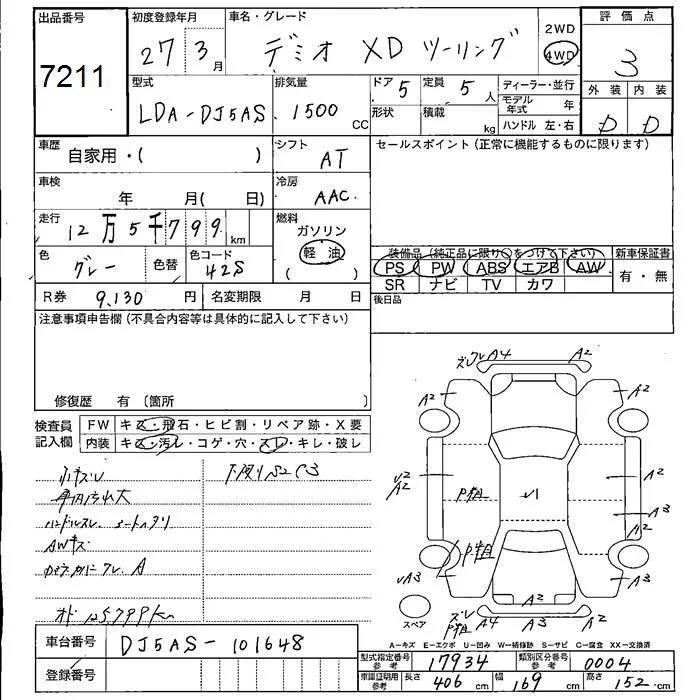 出品番号 初度登録年月 車名・グレード 2WD 評価点
7211 27 3月 デミオ XD ツーリング 4WD 3
型式 排気量 ドア 5 定員 5人 ディーラー・並行 外装 内装
LDA-DJ5AS 1500 CC 形状 積載 kg モデル年式 年 D D
ハンドル 左・右
車歴 自家用・( ) シフト AT セールスポイント (正常に機能するものに限ります)
車検 年 月( 日) 冷房 AAC
走行 12万5千799km 燃料 ガソリン
軽油
( )
色 グレー 色替 色コード 42S
装備品 (純正品に限り○をつけて下さい) 新車保証書
PS PW ABS エアB AW 有・無
SR ナビ TV カワ
R券 9,130円 名変期限 月 日 後日品
注意事項申告欄 (不具合内容等は具体的に記入して下さい)
修復歴 有 〔箇所 〕
検査員記入欄 FW キズ・飛石・ヒビ割・リペア跡・X要
内装 キズ・汚レ・コゲ・穴・スレ・キレ・破レ
ズレ A4 A2
A2 A2
A2 A2
A3
A2
A3 A3
A2
ズレ A4 A3 A2
スペア
小キズレ
車内汚れ大
ハンドルスレ、シートヘタリ
AWキズ
オド 125,799km
A=キズ E=エクボ U=凹み W=補修跡 S=サビ C=腐食 XX=交換済
車台番号 DJ5AS-101648
登録番号
型式指定番号 参考 17934 類別区分番号 参考 0004
車庫証明用 参考 長さ 406 cm 幅 169 cm 高さ 152 cm